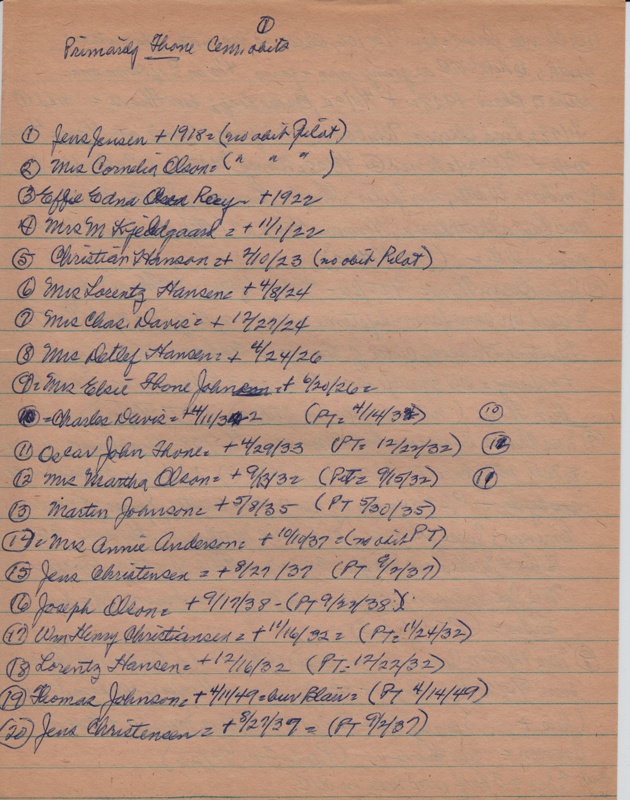 ①
Primarily Thone Cem obits
① Jens Jensen + 1918 = (no obit Pilot)
② Mrs Cornelia Olson = ( " " " )
③ Effie Edna Reey + 1922
④ Mrs M Kjeldgaard = + 11/1/22
⑤ Christian Hanson = + 2/10/23 (no obit Pilot)
⑥ Mrs Lorentz Hansen = + 4/8/24
⑦ Mrs Chas. Davis = + 12/27/24
⑧ Mrs Detlef Hansen = + 4/24/26
⑨ = Mrs Elsie Thone Johnson = + 6/20/26 =
⑩ = Charles Davis = + 4/11/32 (PT = 4/14/32) ⑩
⑪ Oscar John Thone = + 4/29/33 (PT = 12/22/32) ⑫
⑫ Mrs Martha Olson = + 9/13/32 (PT = 9/15/32) ⑪
⑬ Martin Johnson = + 5/8/35 (PT 5/30/35)
⑭ = Mrs Annie Anderson = + 10/10/37 = (no obit PT)
⑮ Jens Christensen = + 8/27/37 (PT 9/2/37)
⑯ Joseph Olson = + 9/17/38 - (PT 9/22/38)
⑰ Wm Henry Christiansen = + 11/16/32 = (PT = 11/24/32)
⑱ Lorentz Hansen = + 12/16/32 (PT - 12/22/32)
⑲ Thomas Johnson = + 4/11/49 = bur Blair = (PT 4/14/49)
⑳ Jens Christensen = + 8/27/37 = (PT 9/2/37)